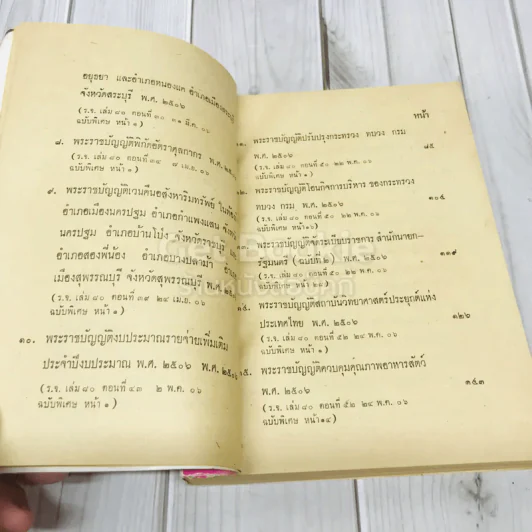 อยุธยา และอำเภอหนองแค อำเภอเมืองสระบุรี
จังหวัดสระบุรี พ.ศ. ๒๕๐๖
(ร.จ. เล่ม ๘๐ ตอนที่ ๓๐ ๓๑ มี.ค. ๐๖
ฉบับพิเศษ หน้า ๑)
๘. พระราชบัญญัติพิกัดอัตราศุลกากร พ.ศ.
(ร.จ. เล่ม ๘๐ ตอนที่ ๓๔ ๙ เม.ย. ๐๖
ฉบับพิเศษ หน้า ๑)
๙. พระราชบัญญัติเวนคืนอสังหาริมทรัพย์ ในท้องที่
อำเภอเมืองนครปฐม อำเภอกำแพงแสน จังหวัด
นครปฐม อำเภอบ้านโป่ง จังหวัดราชบุรี และ
อำเภอสองพี่น้อง อำเภอบางปลาม้า อำเภอ
เมืองสุพรรณบุรี จังหวัดสุพรรณบุรี
(ร.จ. เล่ม ๘๐ ตอนที่ ๓๙ ๒๔ เม.ย. ๐๖
ฉบับพิเศษ หน้า ๑)
๑๐. พระราชบัญญัติงบประมาณรายจ่ายเพิ่มเติม
ประจำปีงบประมาณ พ.ศ. ๒๕๐๖ พ.ศ. ๒๕๐๖
(ร.จ. เล่ม ๘๐ ตอนที่ ๔๓ ๒ พ.ค. ๐๖
ฉบับพิเศษ หน้า ๑)
หน้า
๑๑. พระราชบัญญัติปรับปรุงกระทรวง ทบวง กรม
พ.ศ. ๒๕๐๖ ๘๕
(ร.จ. เล่ม ๘๐ ตอนที่ ๕๐ ๒๒ พ.ค. ๐๖
ฉบับพิเศษ หน้า ๑)
๑๒. พระราชบัญญัติโอนกิจการบริหาร ของกระทรวง
ทบวง กรม พ.ศ. ๒๕๐๖ ๑๐๕
(ร.จ. เล่ม ๘๐ ตอนที่ ๕๐ ๒๒ พ.ค. ๐๖
ฉบับพิเศษ หน้า ๑๖)
๑๓. พระราชบัญญัติจัดระเบียบราชการ สำนักนายก-
รัฐมนตรี (ฉบับที่ ๒) พ.ศ. ๒๕๐๖ ๑๑๙
(ร.จ. เล่ม ๘๐ ตอนที่ ๕๐ ๒๒ พ.ค. ๐๖
ฉบับพิเศษ หน้า
๑๔. พระราชบัญญัติสถาบันวิทยาศาสตร์ประยุกต์แห่ง
ประเทศไทย พ.ศ. ๒๕๐๖ ๑๒๖
(ร.จ. เล่ม ๘๐ ตอนที่ ๕๒ ๒๔ พ.ค. ๐๖
ฉบับพิเศษ หน้า ๑)
๑๕. พระราชบัญญัติควบคุมคุณภาพอาหารสัตว์
พ.ศ. ๒๕๐๖ ๑๔๓
(ร.จ. เล่ม ๘๐ ตอนที่ ๕๒ ๒๔ พ.ค. ๐๖
ฉบับพิเศษ หน้า ๑๔)